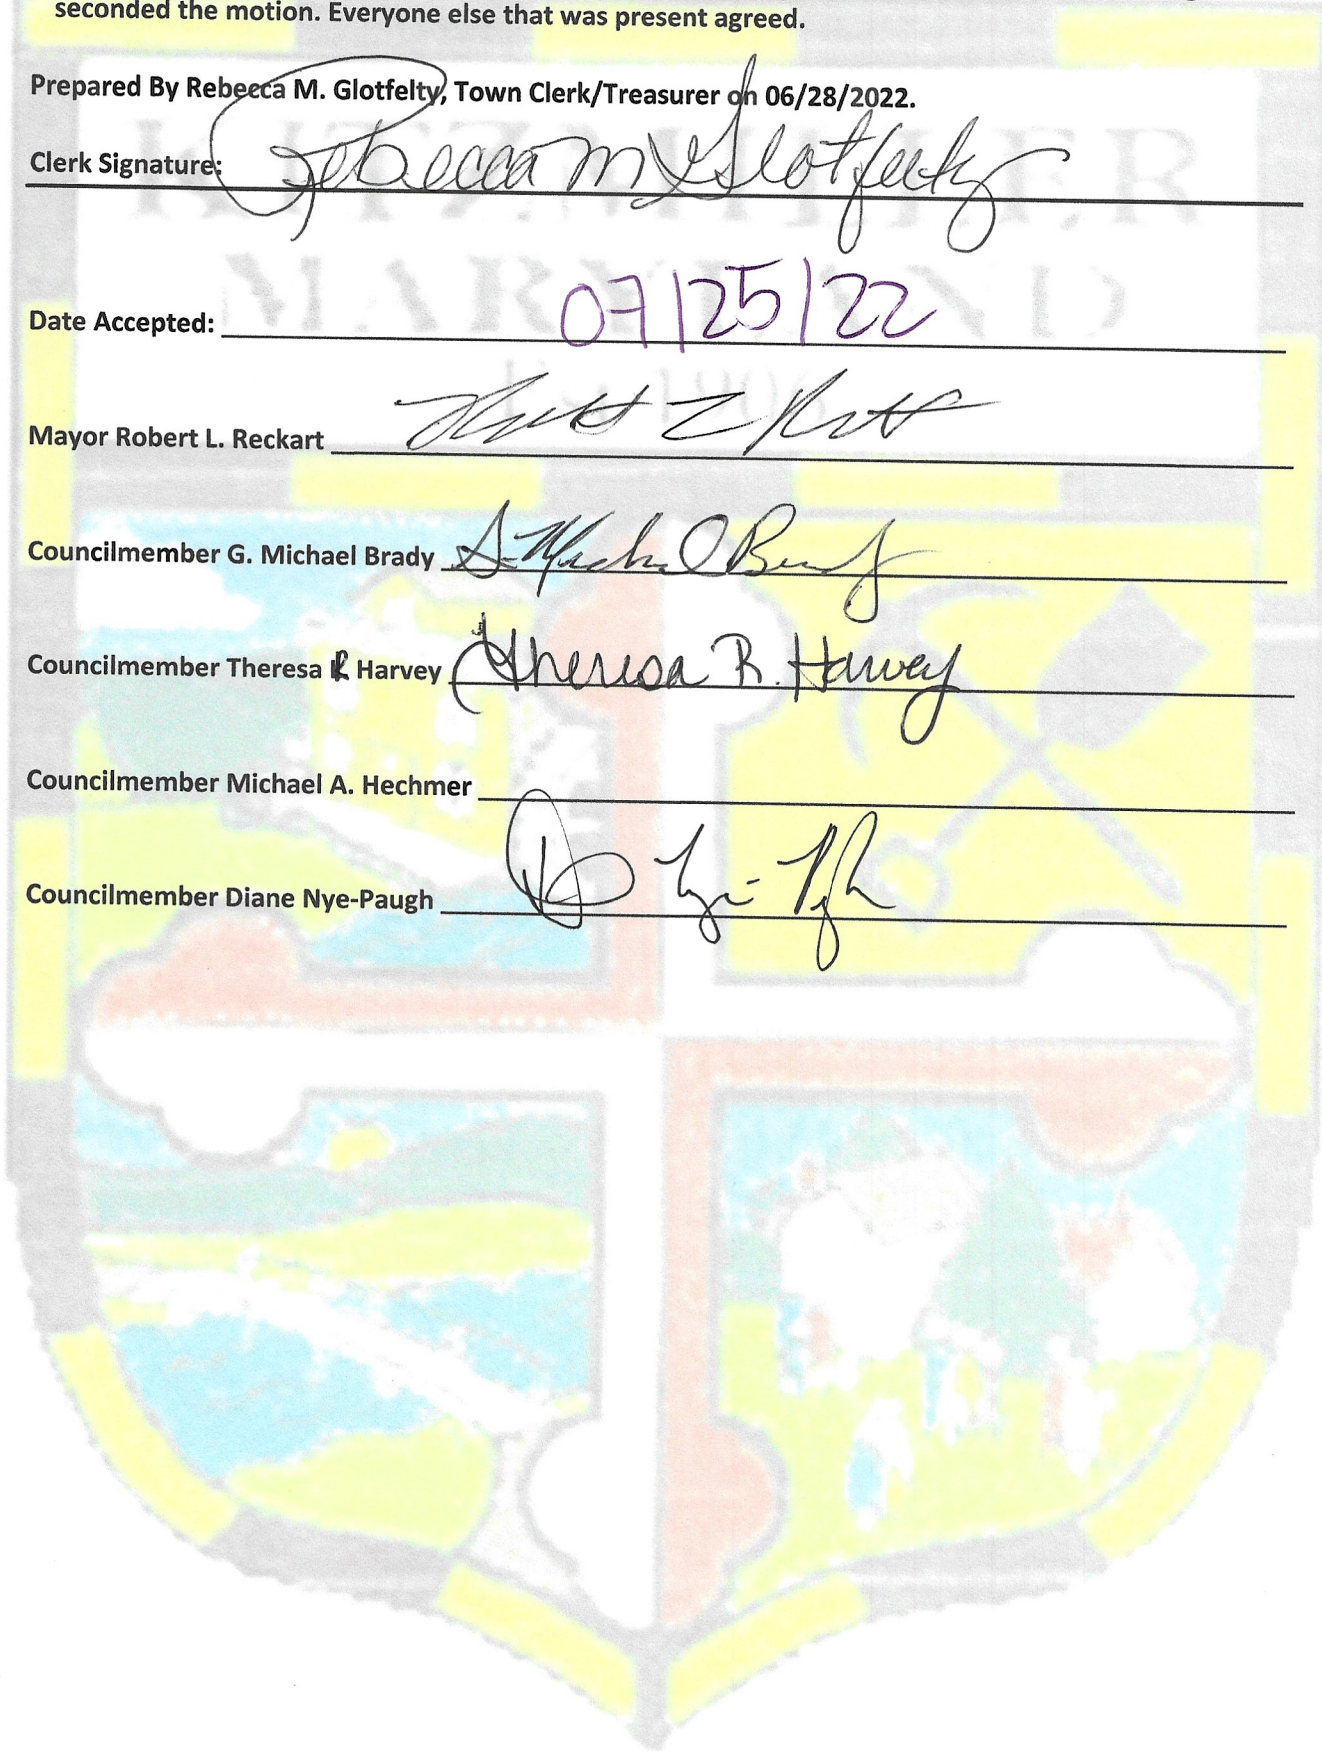 seconded the motion. Everyone else that was present agreed.
Prepared By Rebecca M. Glotfelty, Town Clerk/Treasurer on 06/28/2022.
Clerk Signature: Rebecca M Glotfelty
KITZMILLER
MARYLAND
Date Accepted: 07/25/22
Mayor Robert L. Reckart
Councilmember G. Michael Brady G. Michael Brady
Councilmember Theresa R Harvey Theresa R. Harvey
Councilmember Michael A. Hechmer
Councilmember Diane Nye-Paugh